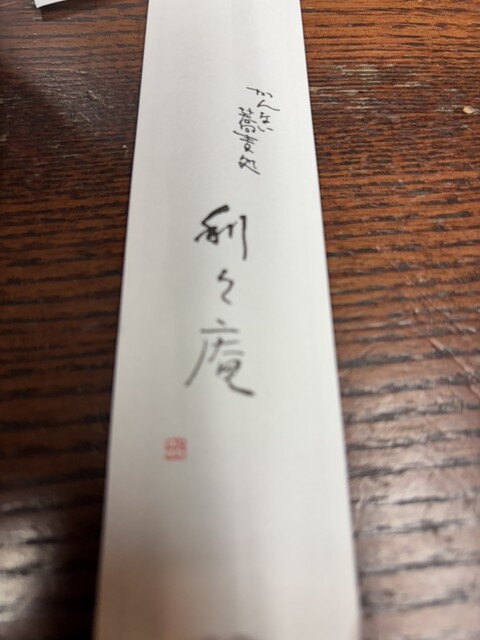 かんない蕎麦処
利久庵